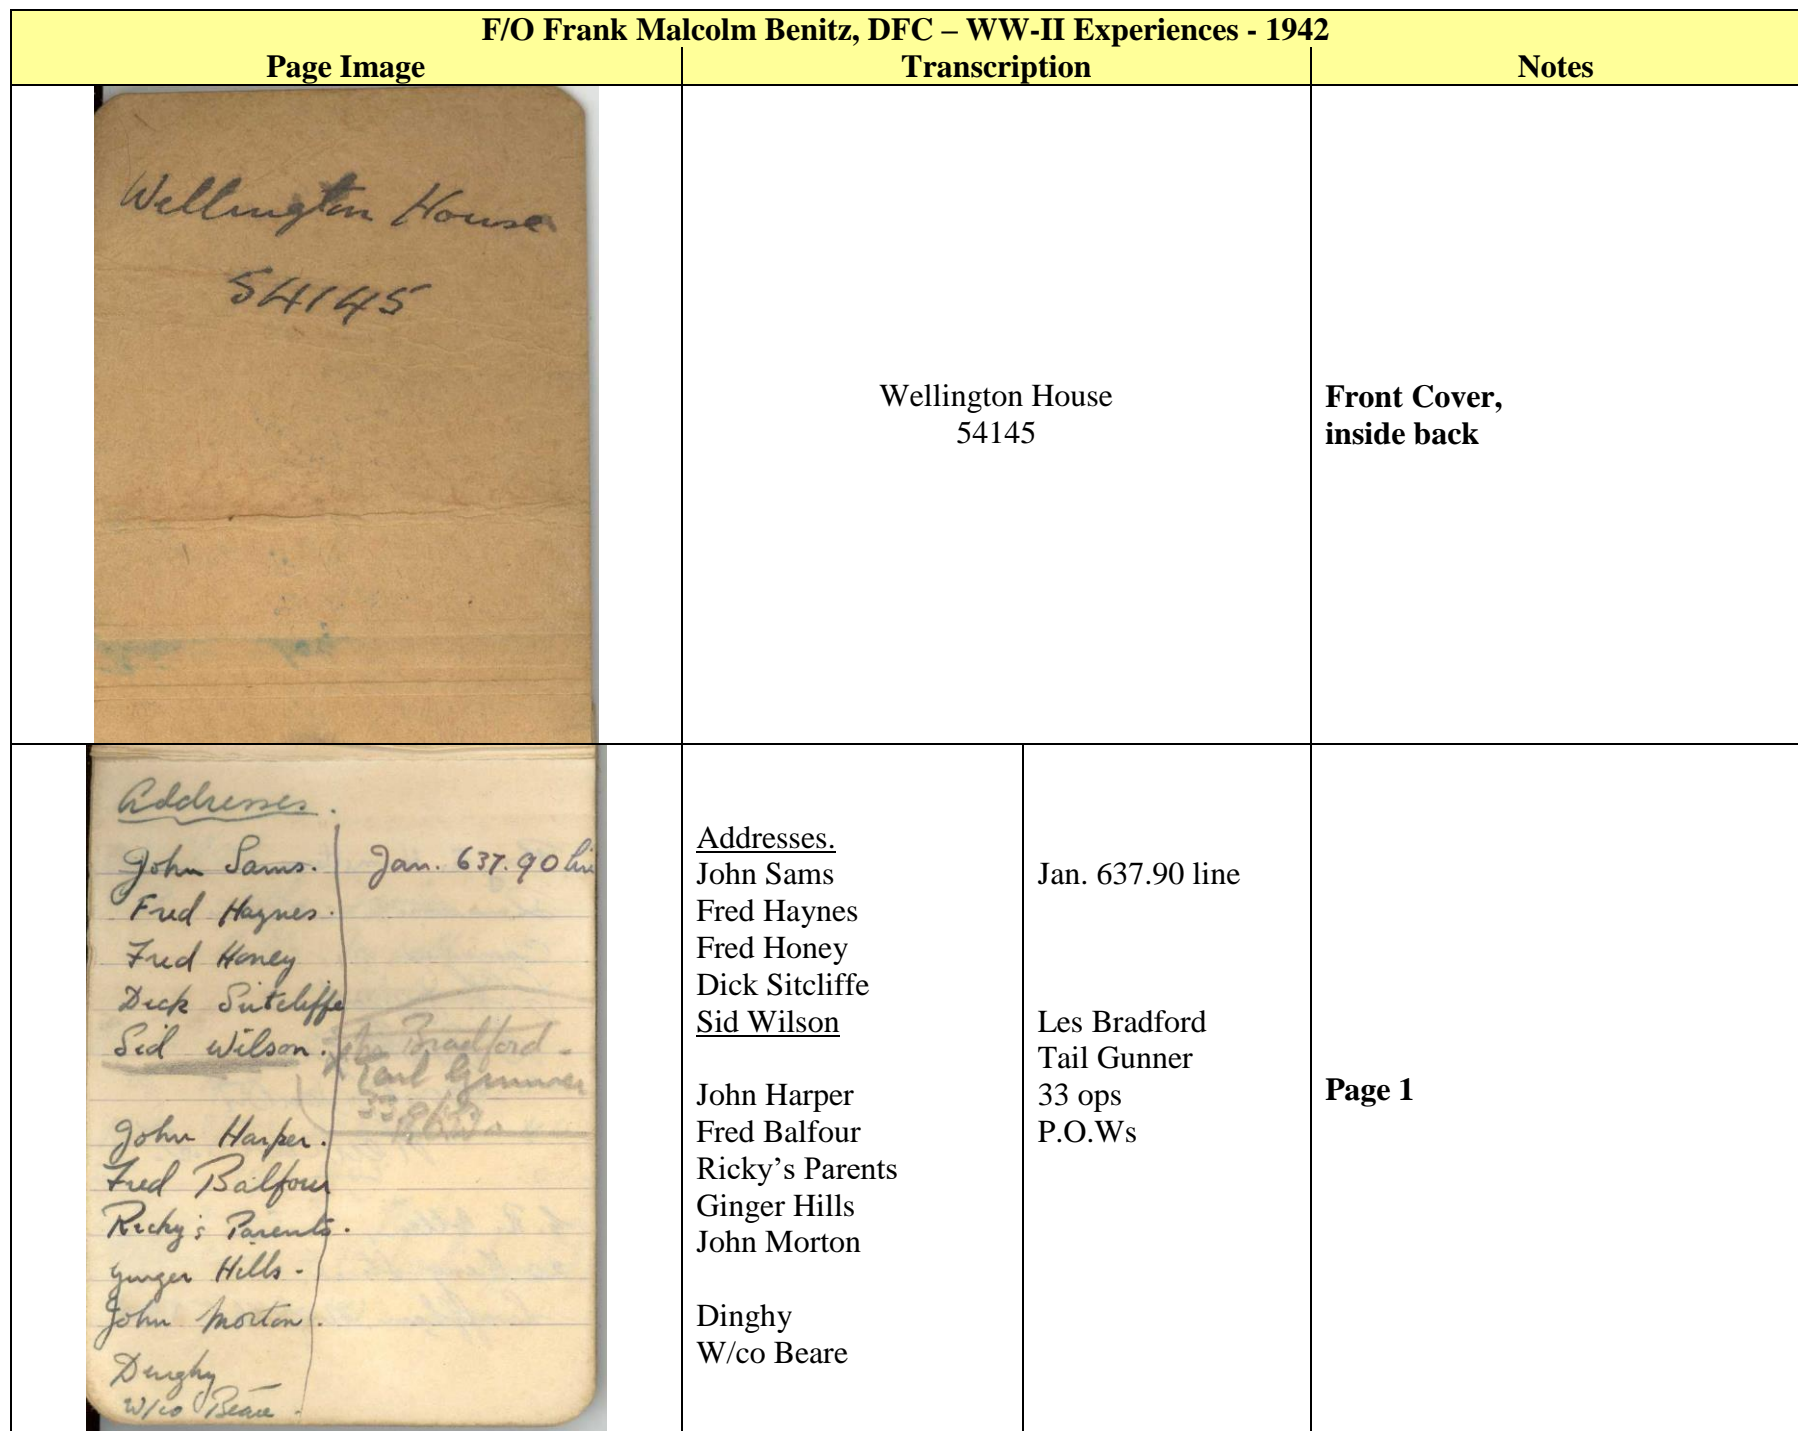 F/O Frank Malcolm Benitz, DFC – WW-II Experiences - 1942
Page Image
Transcription
Notes
Wellington House
54145
Wellington House
54145
Front Cover,
inside back
Addresses.
John Sams. Jan. 637.90 lin
Fred Haynes.
Fred Honey
Dick Sutcliffe
Sid Wilson. Les Bradford -
Tail Gunner
33 ops
P.O.Ws
John Harper.
Fred Balfour
Ricky's Parents.
Ginger Hills -
John Morton.
Dinghy
W/co Beare.
Addresses.
John Sams
Fred Haynes
Fred Honey
Dick Sitcliffe
Sid Wilson
John Harper
Fred Balfour
Ricky’s Parents
Ginger Hills
John Morton
Dinghy
W/co Beare
Jan. 637.90 line
Les Bradford
Tail Gunner
33 ops
P.O.Ws
Page 1